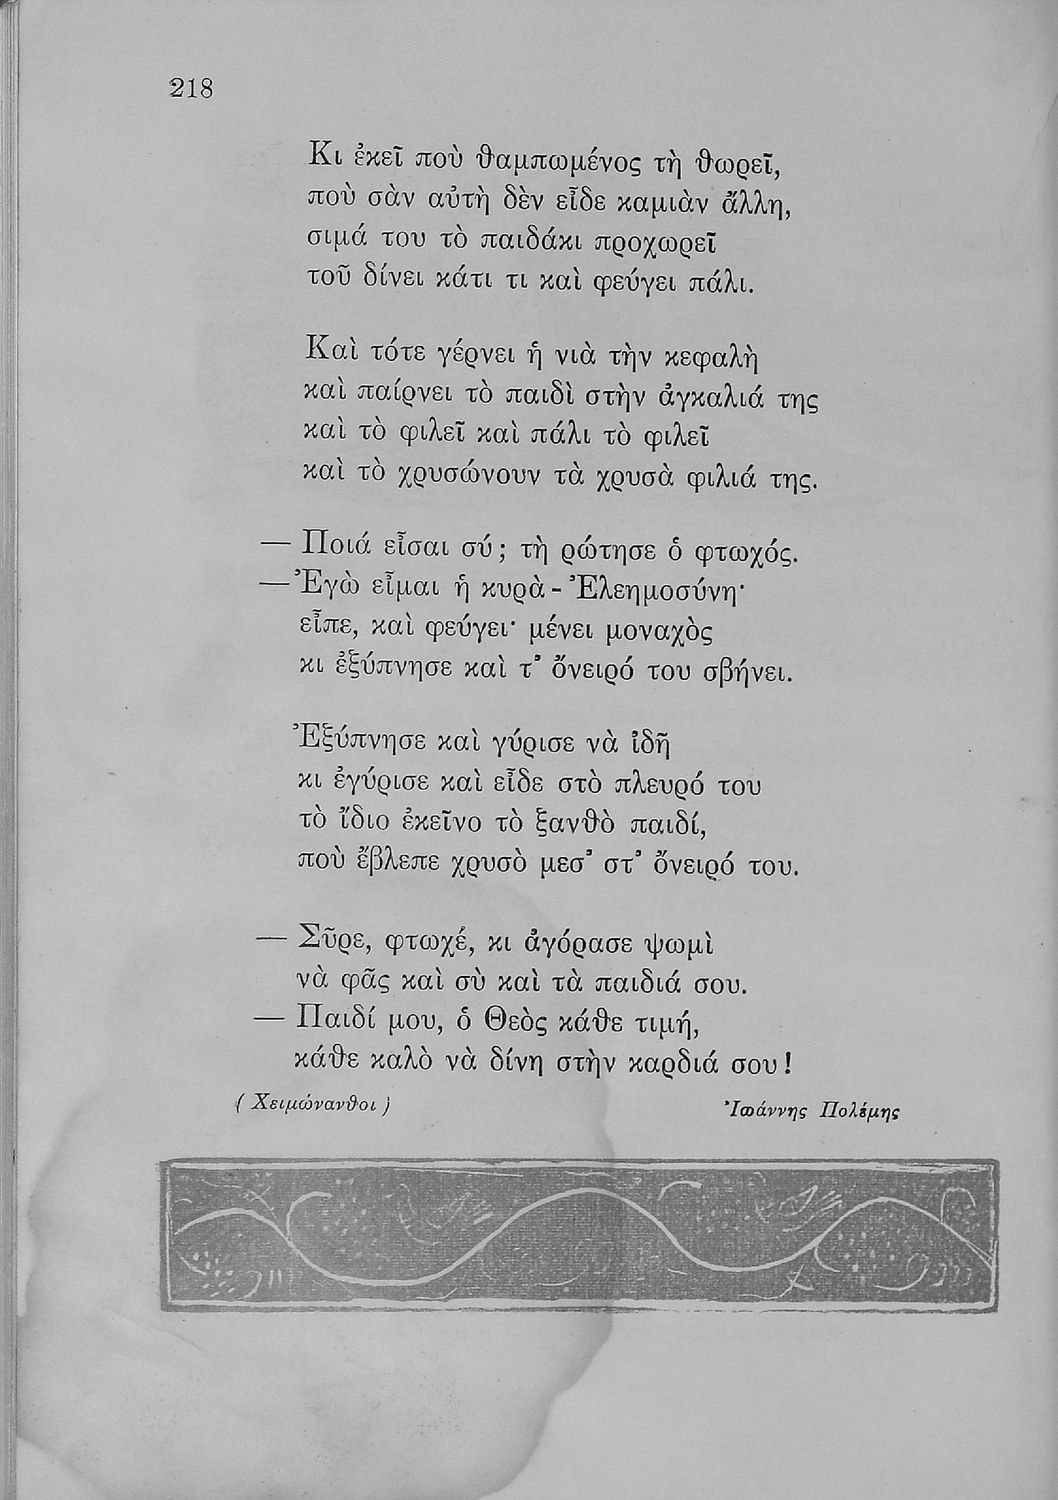 218
Κι ἐκεῖ ποὺ θαμπωμένος τὴ θωρεῖ,
ποὺ σὰν αὐτὴ δὲν εἶδε καμιὰν ἄλλη,
σιμά του τὸ παιδάκι προχωρεῖ
τοῦ δίνει κάτι τι καὶ φεύγει πάλι.
Καὶ τότε γέρνει ἡ νιὰ τὴν κεφαλὴ
καὶ παίρνει τὸ παιδὶ στὴν ἀγκαλιά της
καὶ τὸ φιλεῖ καὶ πάλι τὸ φιλεῖ
καὶ τὸ χρυσώνουν τὰ χρυσὰ φιλιά της.
— Ποιά εἶσαι σύ; τὴ ρώτησε ὁ φτωχός.
— Ἐγὼ εἶμαι ἡ κυρὰ - Ἐλεημοσύνη·
εἶπε, καὶ φεύγει· μένει μοναχὸς
κι ἐξύπνησε καὶ τ’ ὄνειρό του σβήνει.
Ἐξύπνησε καὶ γύρισε νὰ ἰδῆ
κι ἐγύρισε καὶ εἶδε στὸ πλευρό του
τὸ ἴδιο ἐκεῖνο τὸ ξανθὸ παιδί,
ποὺ ἔβλεπε χρυσὸ μεσ’ στ’ ὄνειρό του.
— Σῦρε, φτωχέ, κι ἀγόρασε ψωμὶ
νὰ φᾶς καὶ σὺ καὶ τὰ παιδιά σου.
— Παιδί μου, ὁ Θεὸς κάθε τιμή,
κάθε καλὸ νὰ δίνη στὴν καρδιά σου!
( Χειμώνανθοι )
Ἰωάννης Πολέμης